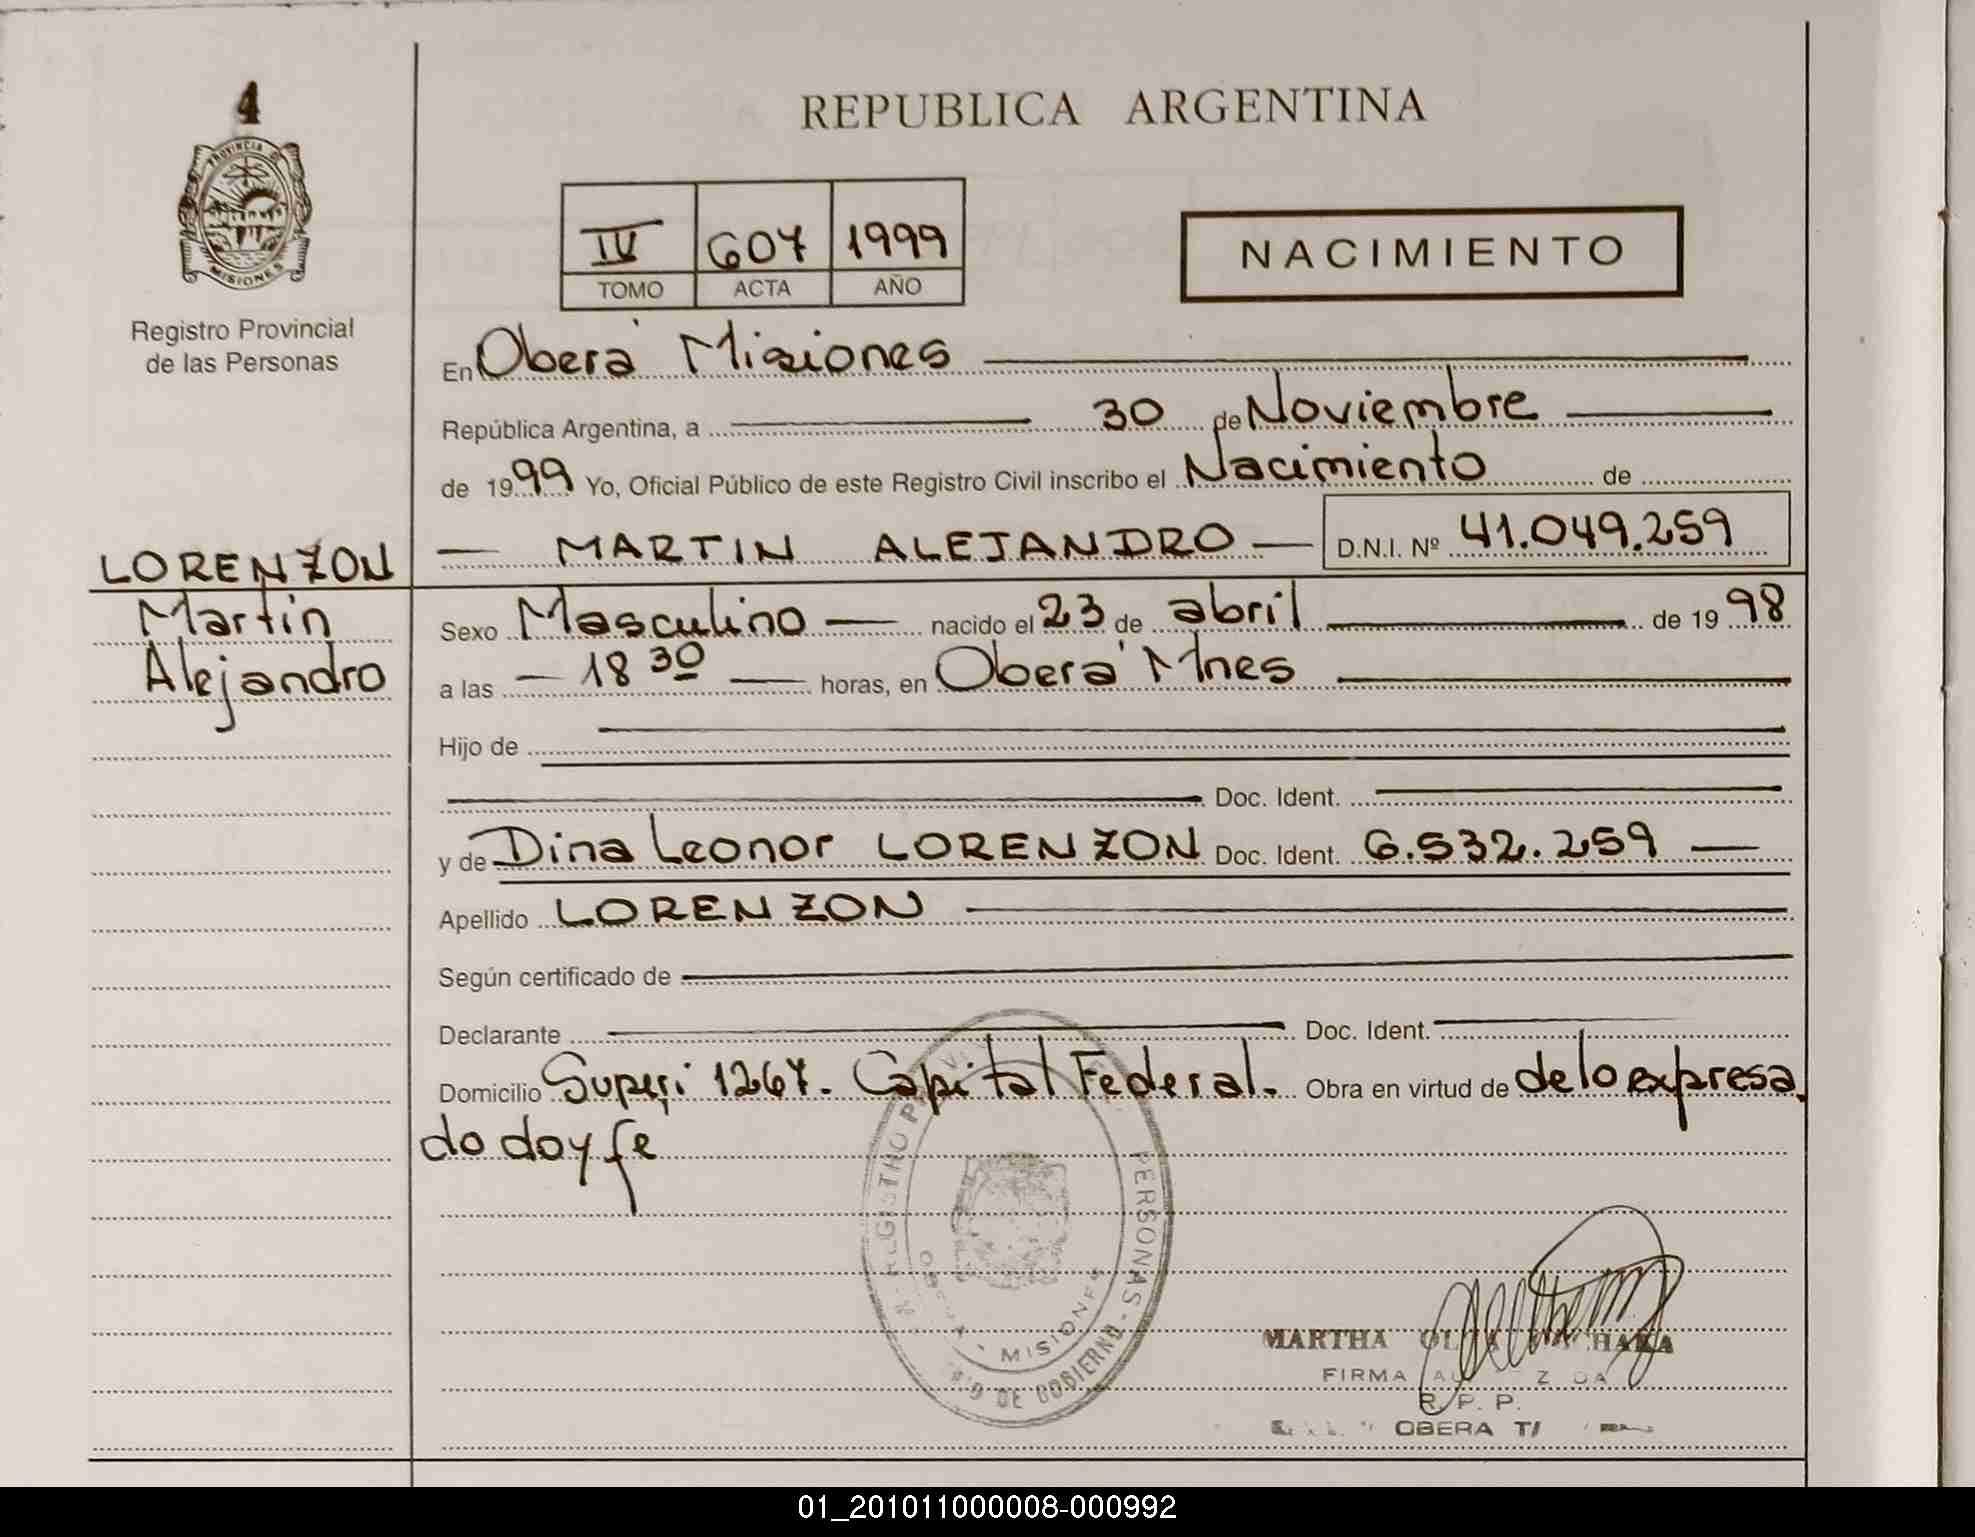 4
PROVINCIA DE
MISIONES
Registro Provincial
de las Personas
LORENZON
Martín
Alejandro
REPUBLICA ARGENTINA
IV 607 1999
TOMO ACTA AÑO
NACIMIENTO
En Oberá Misiones
República Argentina, a 30 de Noviembre
de 1999 Yo, Oficial Público de este Registro Civil inscribo el Nacimiento de
MARTIN ALEJANDRO D.N.I. Nº 41.049.259
Sexo Masculino nacido el 23 de abril de 1998
a las 18 30 horas, en Oberá Mnes
Hijo de
Doc. Ident.
y de Dina Leonor LORENZON Doc. Ident. 6.532.259
Apellido LORENZON
Según certificado de
Declarante Doc. Ident.
Domicilio Superi 1267. Capital Federal. Obra en virtud de de lo expresa
do doy fe
PERSONAS
MISIONES
DE GOBIERNO
MARTHA
FIRMA
R. P. P.
OBERA
01_201011000008-000992